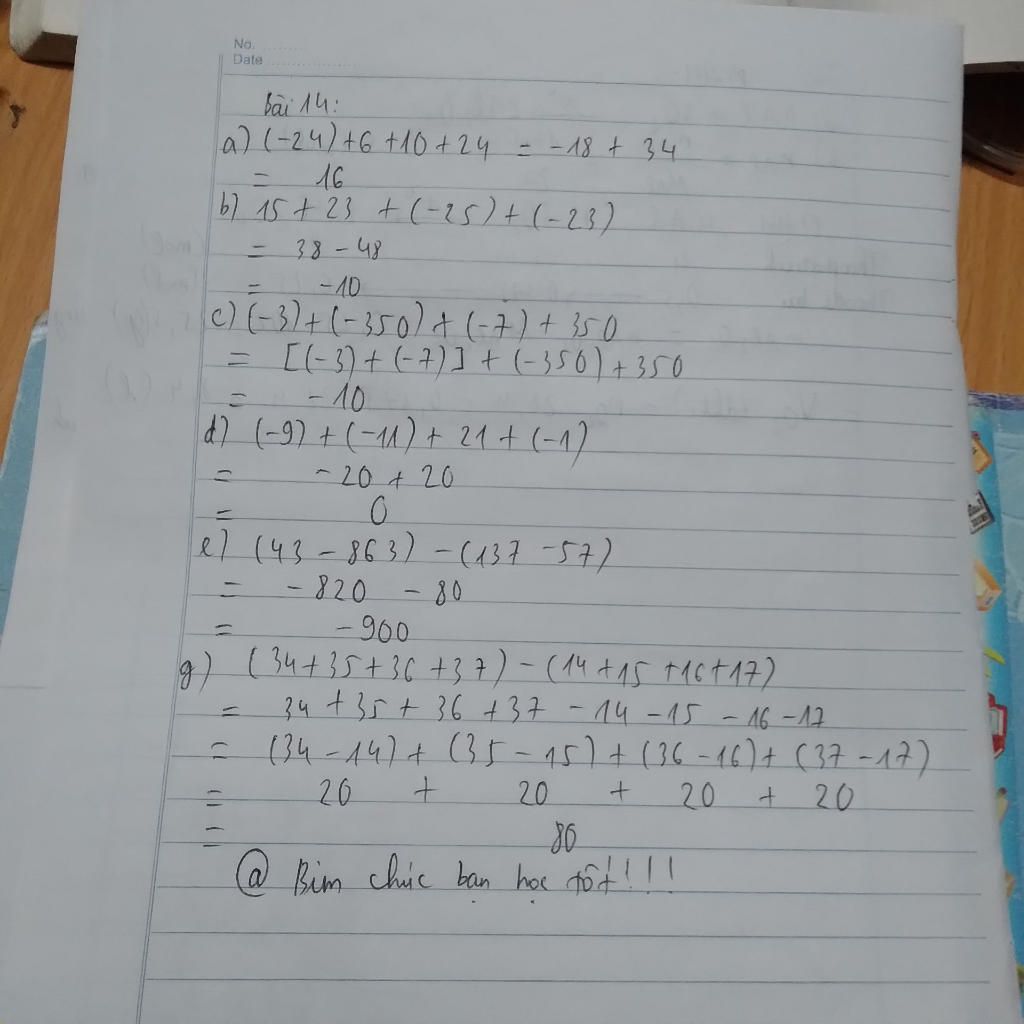 No. ..........
Date ....................
Bài 14:
a) (-24)+6+10+24 = -18 + 34
= 16
b) 15 + 23 + (-25) + (-23)
= 38 - 48
= -10
c) (-3) + (-350) + (-7) + 350
= [(-3) + (-7)] + (-350) + 350
= -10
d) (-9) + (-11) + 21 + (-1)
= -20 + 20
= 0
e) (43 - 863) - (137 - 57)
= -820 - 80
= -900
g) (34+35+36+37) - (14+15+16+17)
= 34 + 35 + 36 + 37 - 14 - 15 - 16 - 17
= (34 - 14) + (35 - 15) + (36 - 16) + (37 - 17)
= 20 + 20 + 20 + 20
= 80
@ Bim chúc bạn học tốt!!!